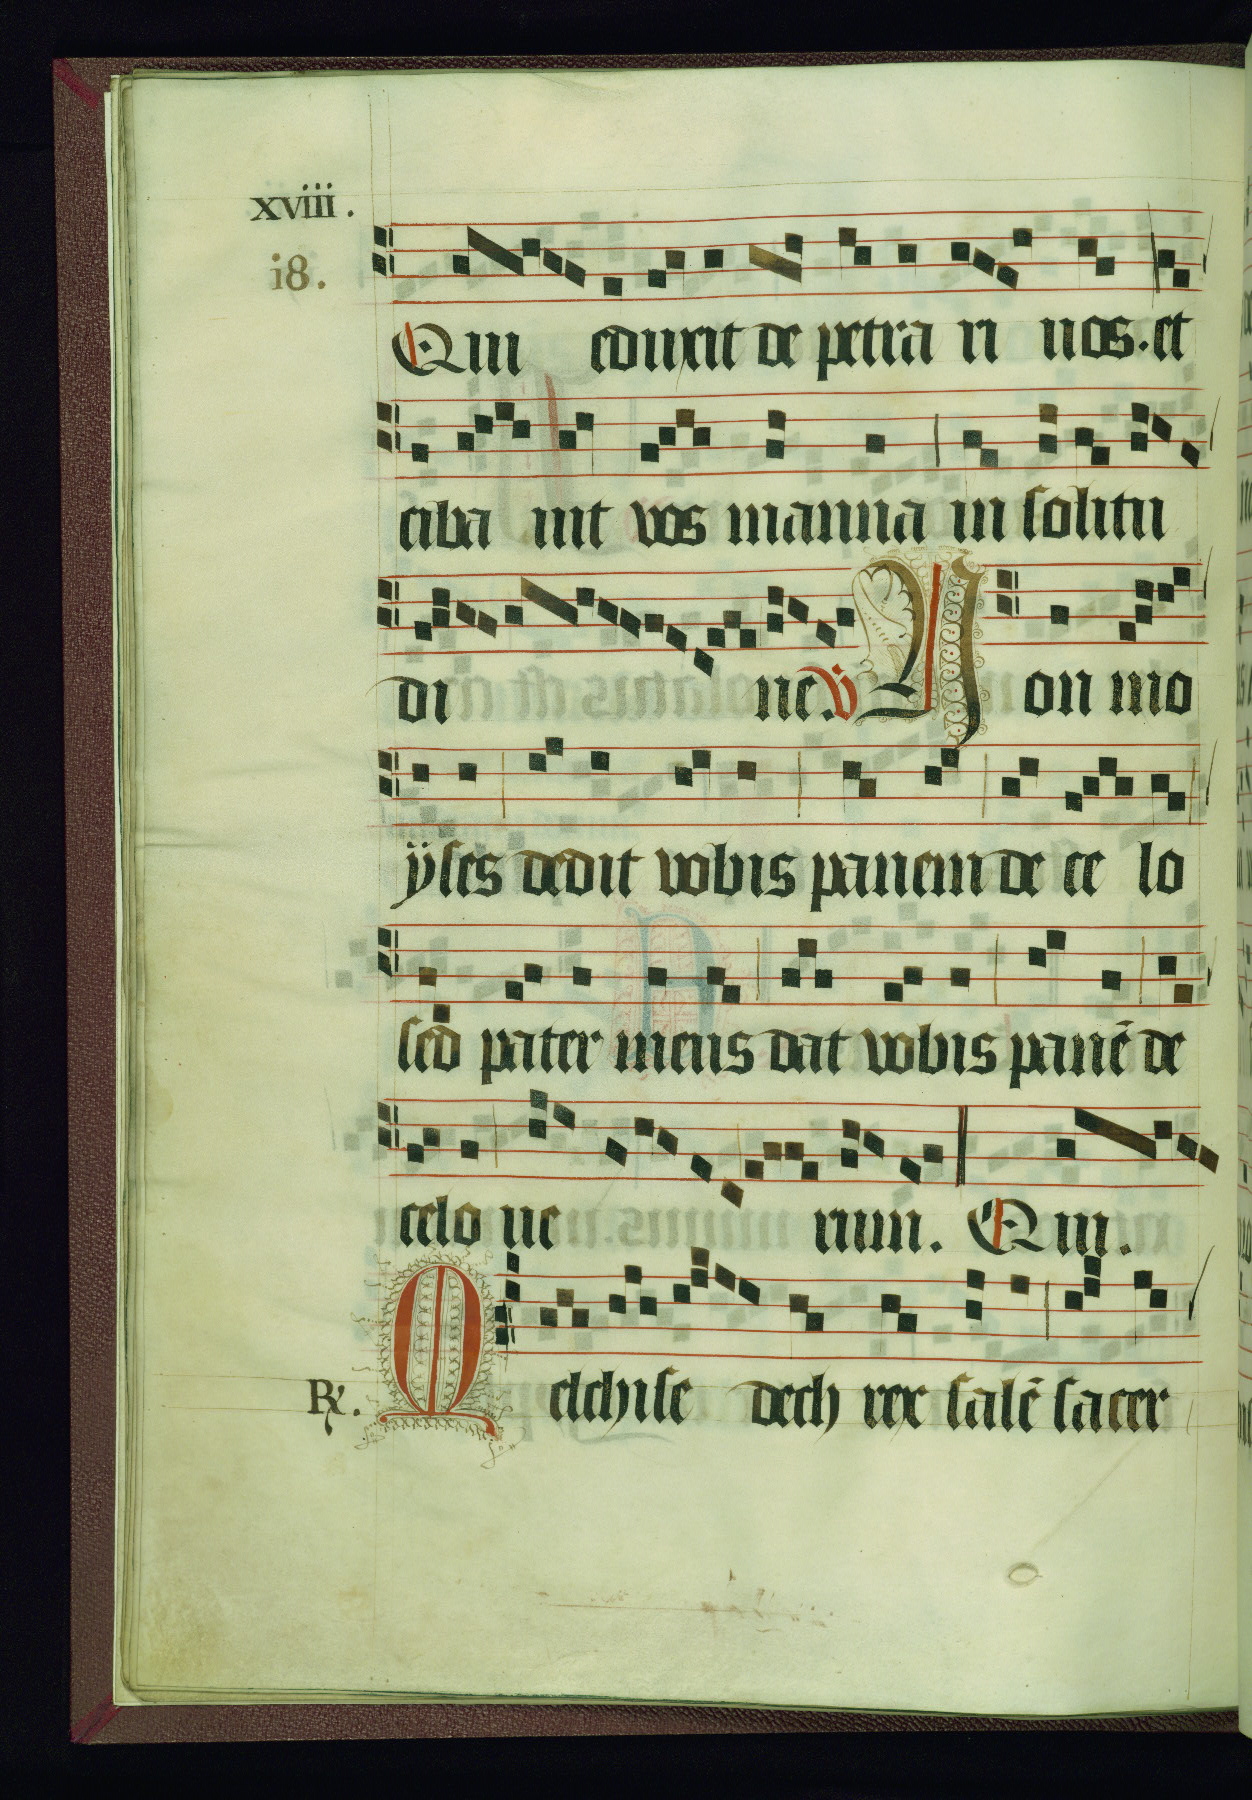 xviii.
i8.
Qui eduxit de petra ri uos. et
ciba uit vos manna in solitu
di ne. V Non mo
ÿses dedit vobis panem de ce lo
sed pater meus dat vobis panē de
celo ue rum. Qui.
R. Melchise dech rex salē sacer